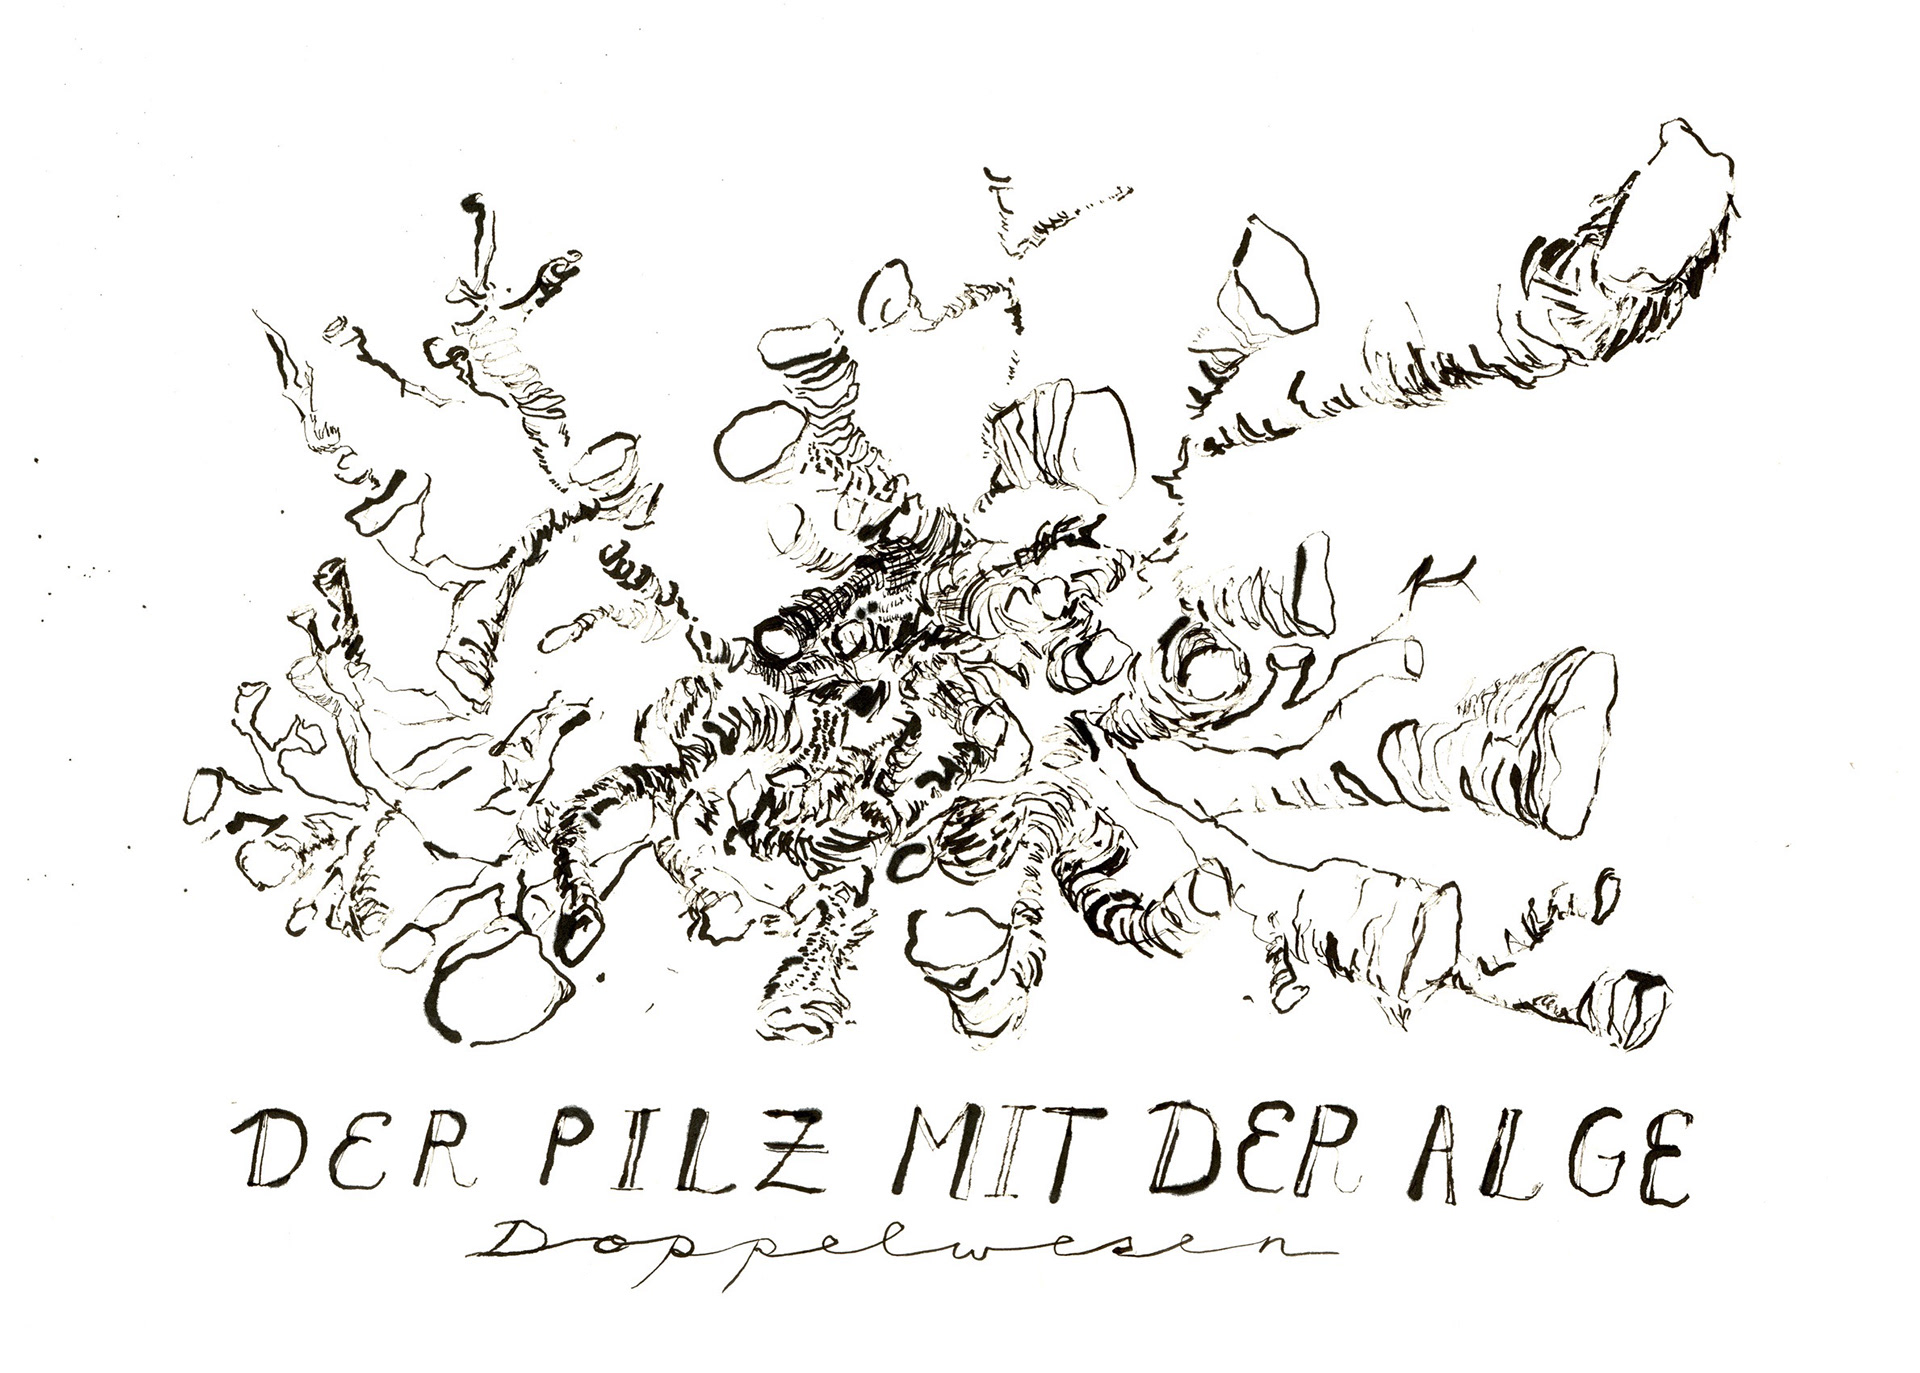 DER PILZ MIT DER ALGE
Doppelwesen